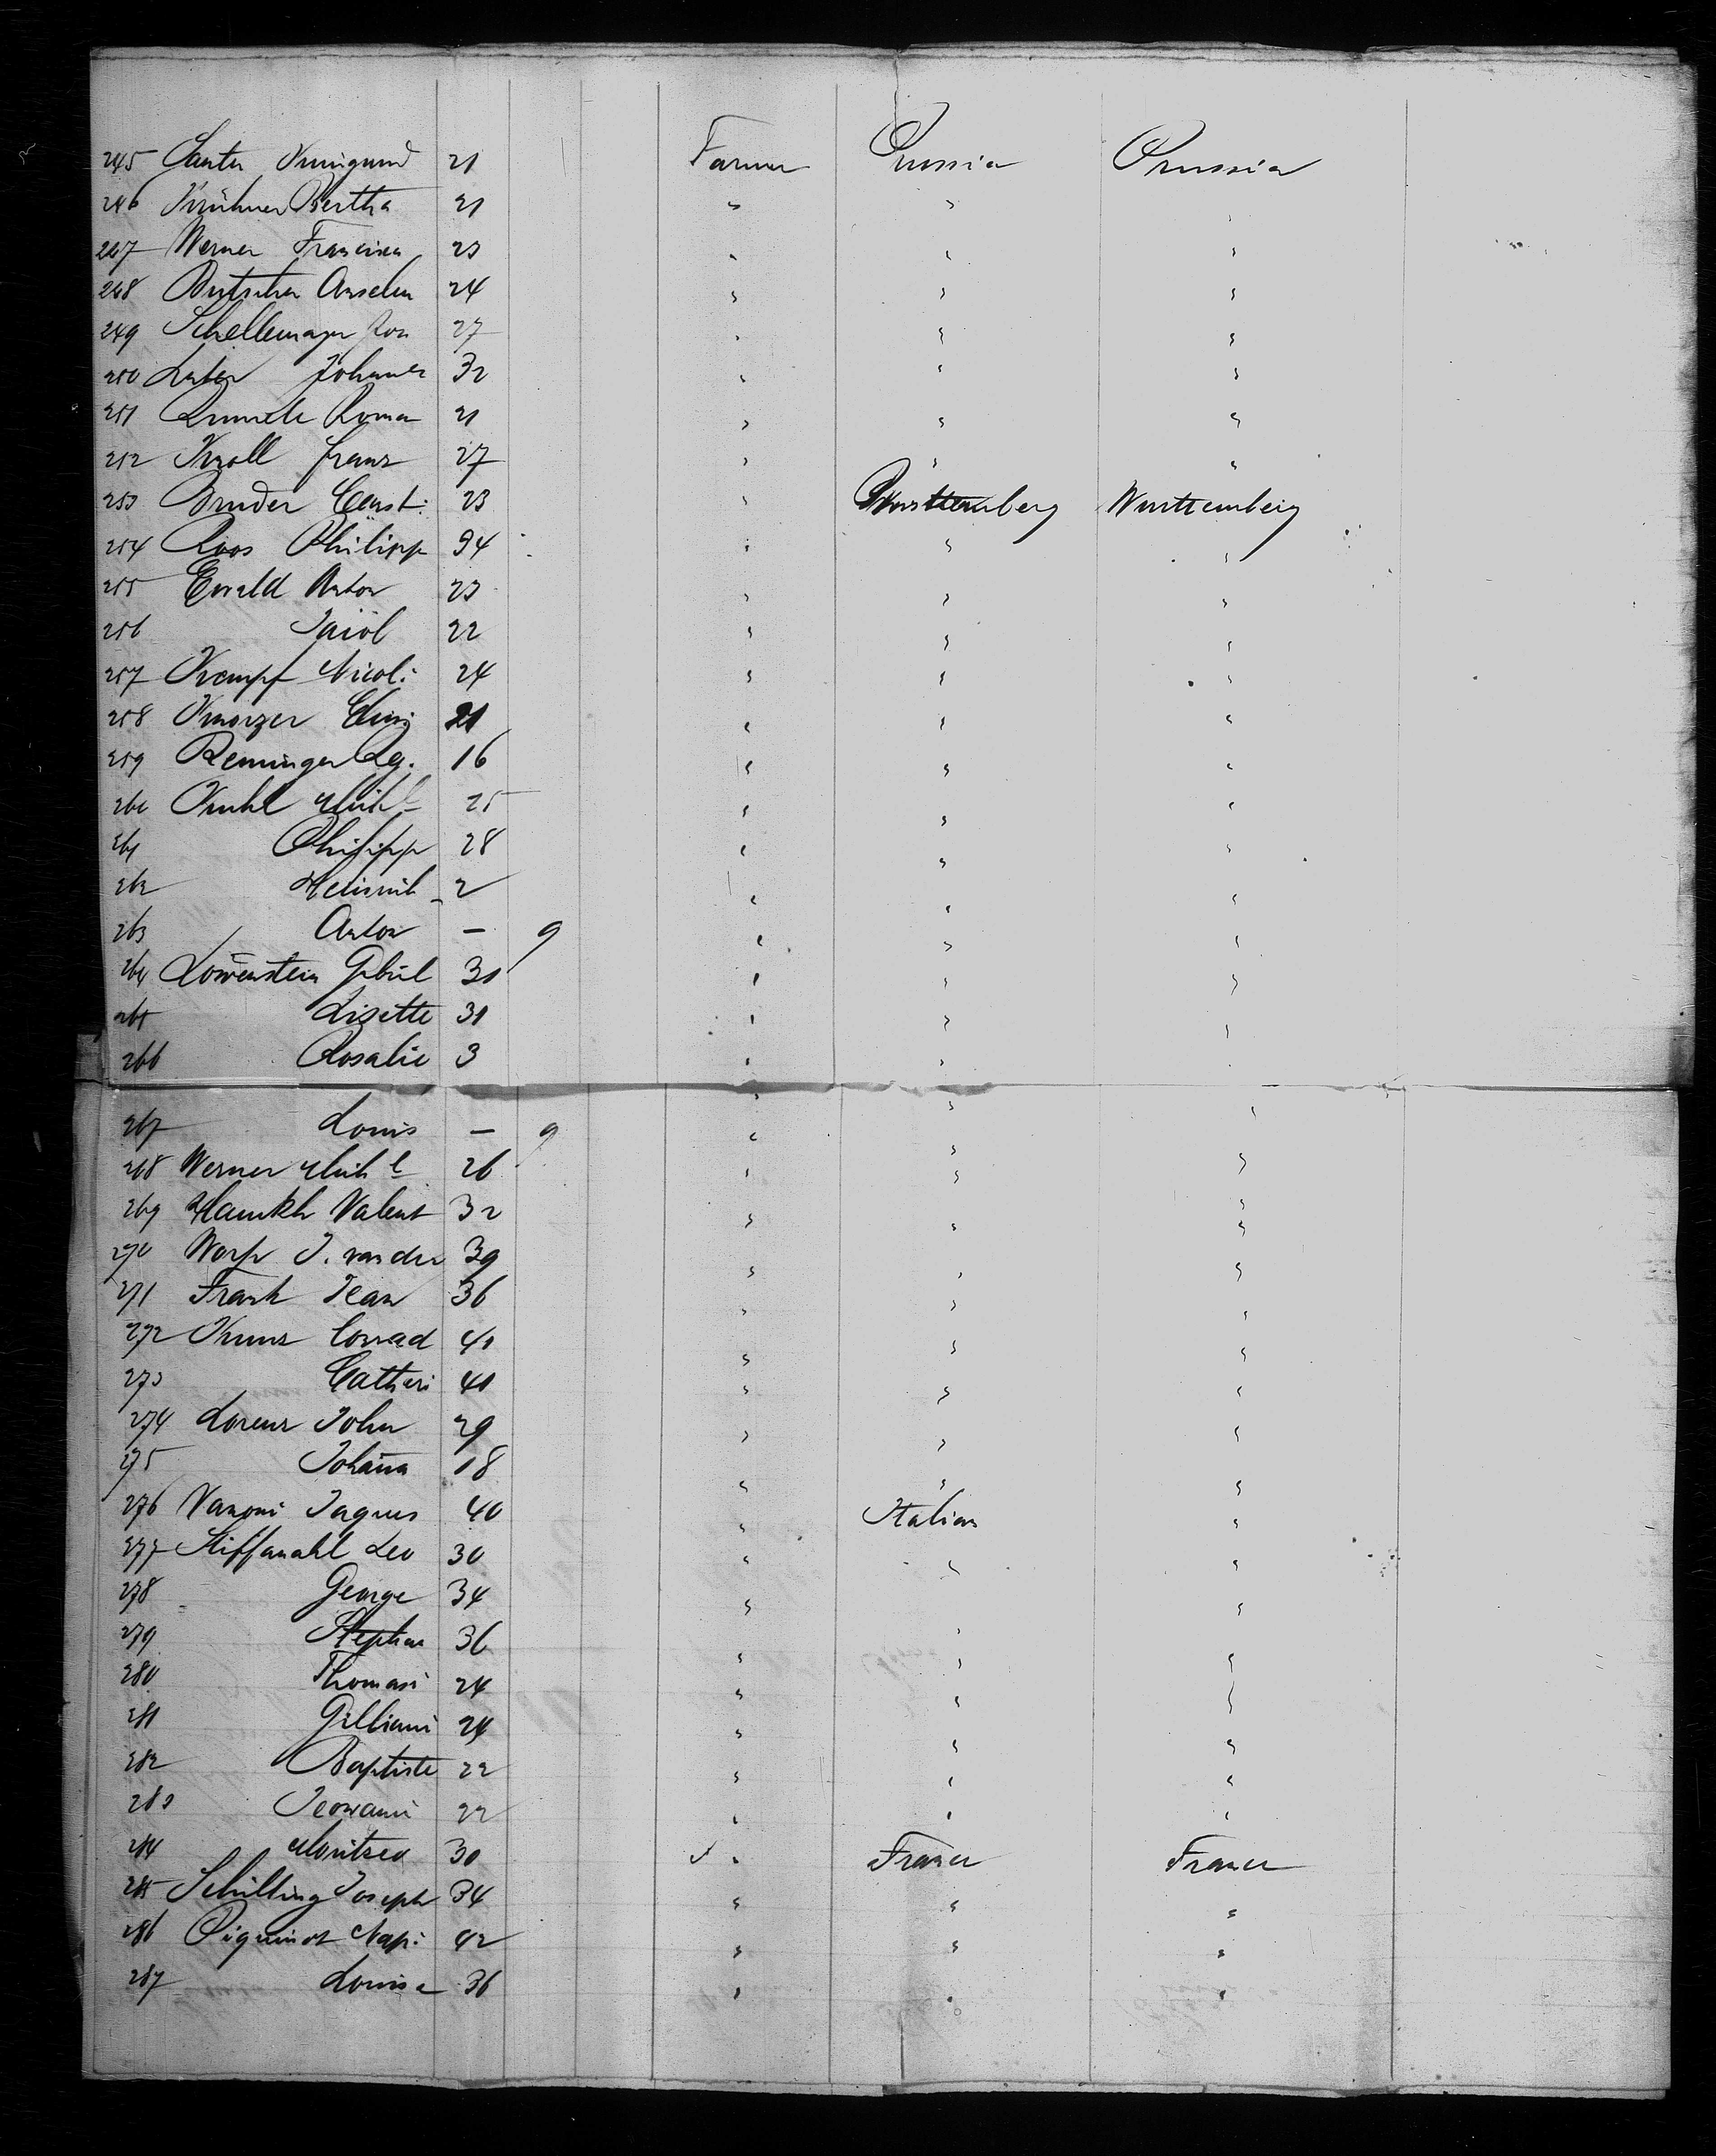 245 Santer Kunigund 21 Farmer Prussia Prussia
246 Bertha 21 " " "
247 Werner Francisca 23 " " "
248 Butscher Anselm 24 " " "
249 27 " " "
250 Johannes 32 " " "
251 Roman 21 " " "
252 Knoll Franz 27 " " "
253 Bruder Const: 23 " Württemberg Württemberg
254 Roos Philipp 34 " " "
255 Ewald Anton 23 " " "
256 22 " " "
257 Kempf Nicol: 24 " " "
258 21 " " "
259 Reminger 16 " " "
260 Kuhl Mich l 25 " " "
261 Philipp 28 " " "
262 Heinrich 2 " " "
263 Anton — 9 " " "
264 Löwenstein 31 " " "
265 Lisette 31 " " "
266 Rosalie 3 " " "
267 Louis — 9 " " "
268 Werner Mich l 26 " " "
269 Valent 32 " " "
270 Worp J. van der 39 " " "
271 Frank Jean 36 " " "
272 Kunz Conrad 41 " " "
273 Catheri 41 " " "
274 Lorenz John 29 " " "
275 Johaña 18 " " "
276 Vanoni Jaques 40 " Italien "
277 Leo 30 " " "
278 George 34 " " "
279 Stephan 36 " " "
280 Thomasi 24 " " "
281 Gilliami 24 " " "
282 Baptiste 22 " " "
283 Jeowanni 22 " " "
284 Moritzeo 30 " France France
285 Schilling Joseph 34 " " "
286 Piquinot Nap: 42 " " "
287 Louise 36 " " "